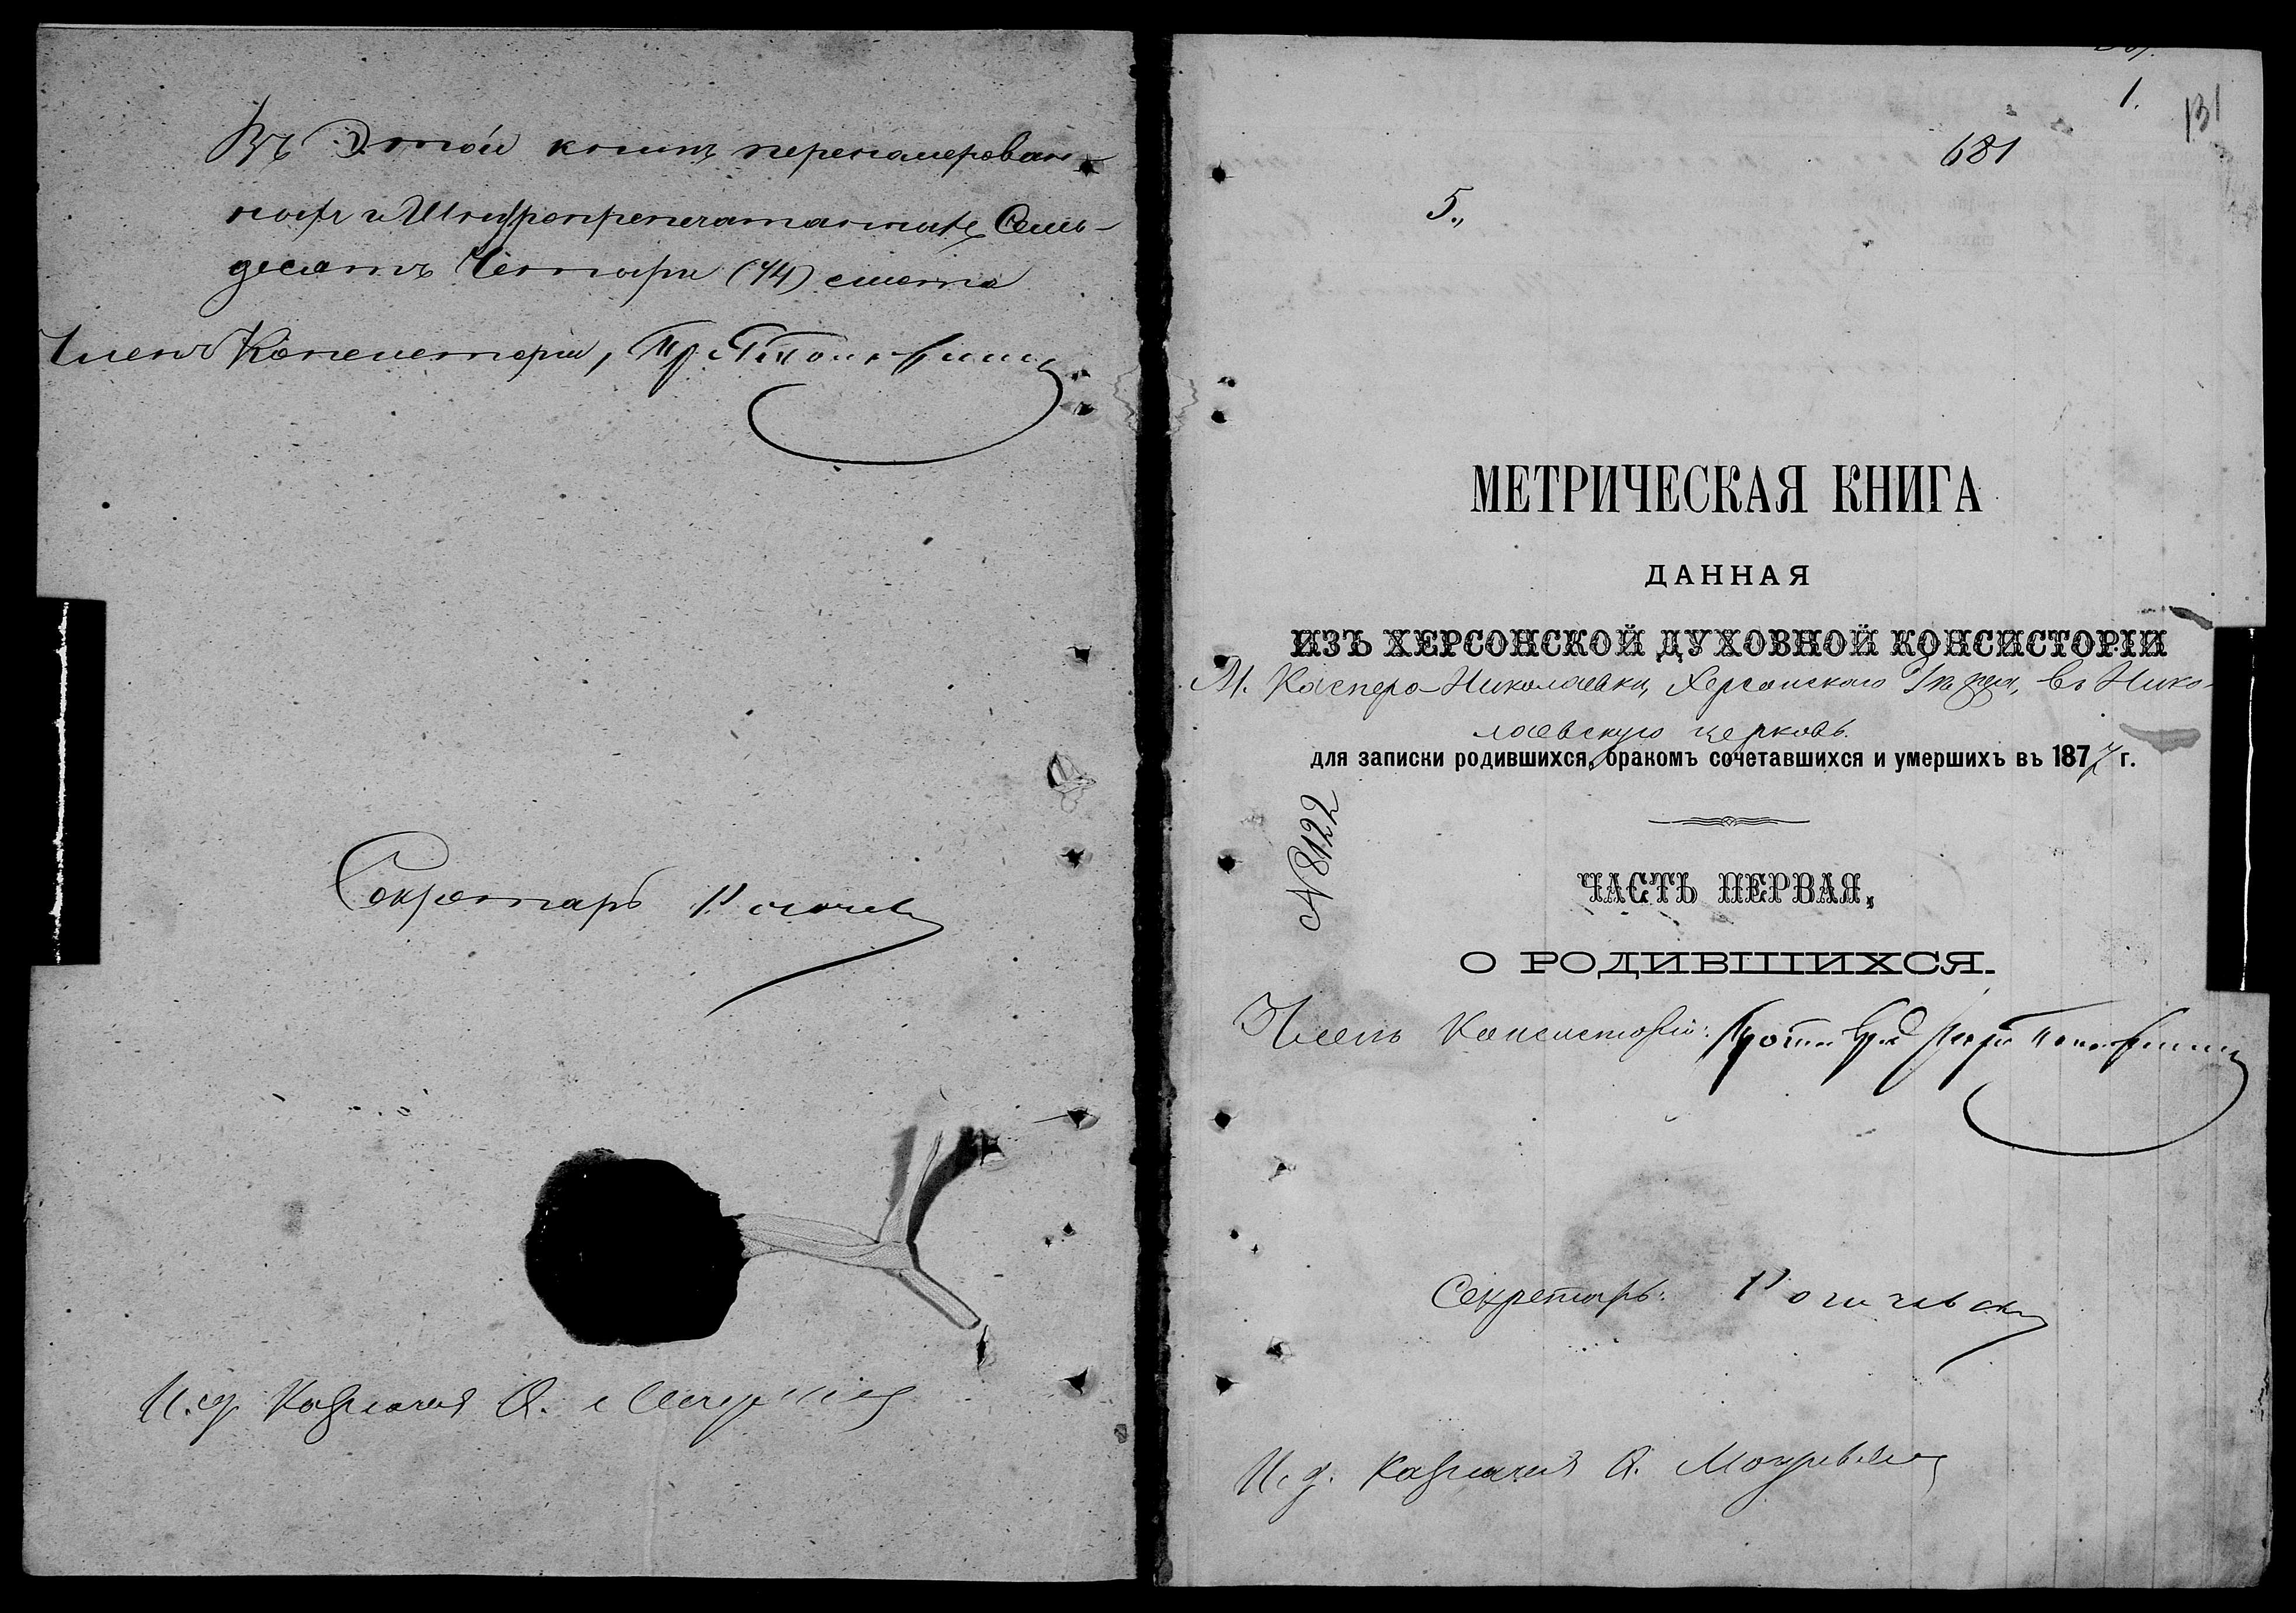 Въ Этой книгѣ перенумерован-
ныхъ и Шнуропрепечатанныхъ Семь-
десятъ Четыри (74) листа
Членъ Консисторіи, Пр.
Секретарь
И. д. Казначея А.
1.
131
681
5.,
МЕТРИЧЕСКАЯ КНИГА
ДАННАЯ
ИЗЪ ХЕРСОНСКОЙ ДУХОВНОЙ КОНСИСТОРІИ
М. Касперо-Николаевки, Херсонскаго Уѣзда, въ Нико-
лаевскую церковь.
для записки родившихся, бракомъ сочетавшихся и умершихъ въ 1877 г.
N 8122
ЧАСТЬ ПЕРВАЯ,
О РОДИВШИХСЯ.
Членъ Консисторіи:
Секретарь:
И. д. Казначея А.